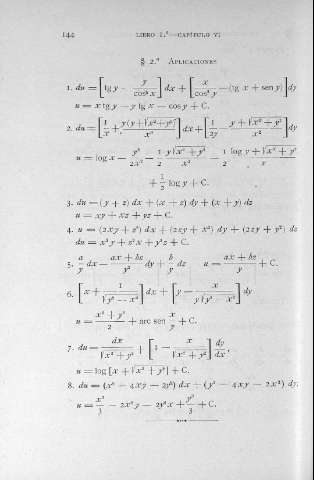 144 LIBRO 1.º—CAPÍTULO VI
§ 2.º APLICACIONES
1. du = [tg y − y/cos² x] dx + [x/cos² y − (tg x + sen y)] dy
u = x tg y − y tg x − cos y + C.
2. du = [1/x + y(y + √x² + y²)/x³] dx + [1/2y − y + √x² + y²/x²] dy
u = log x − y²/2x² − 1/2 y√x² + y²/x² − 1/2 log y + √x² + y²/x
+ 1/2 log y + C.
3. du = (y + z) dx + (x + z) dy + (x + y) dz
u = xy + xz + yz + C.
4. u = (2xy + z²) dx + (2zy + x²) dy + (2xz + y²) dz
du = x²y + z²x + y²z + C.
5. a/y dx − ax + bz/y² dy + b/y dz u = ax + bz/y + C.
6. [x + 1/√y² − x²] dx + [y − x/y√y² − x²] dy
u = x² + y²/2 + arc sen x/y + C.
7. du = dx/√x² + y² + [1 − x/√x² + y²] dy/dx,
u = log [x + √x² + y²] + C.
8. du = (x² − 4xy − 2y²) dx + (y² − 4xy − 2x²) dy,
u = x³/3 − 2x²y − 2y²x + y³/3 + C.